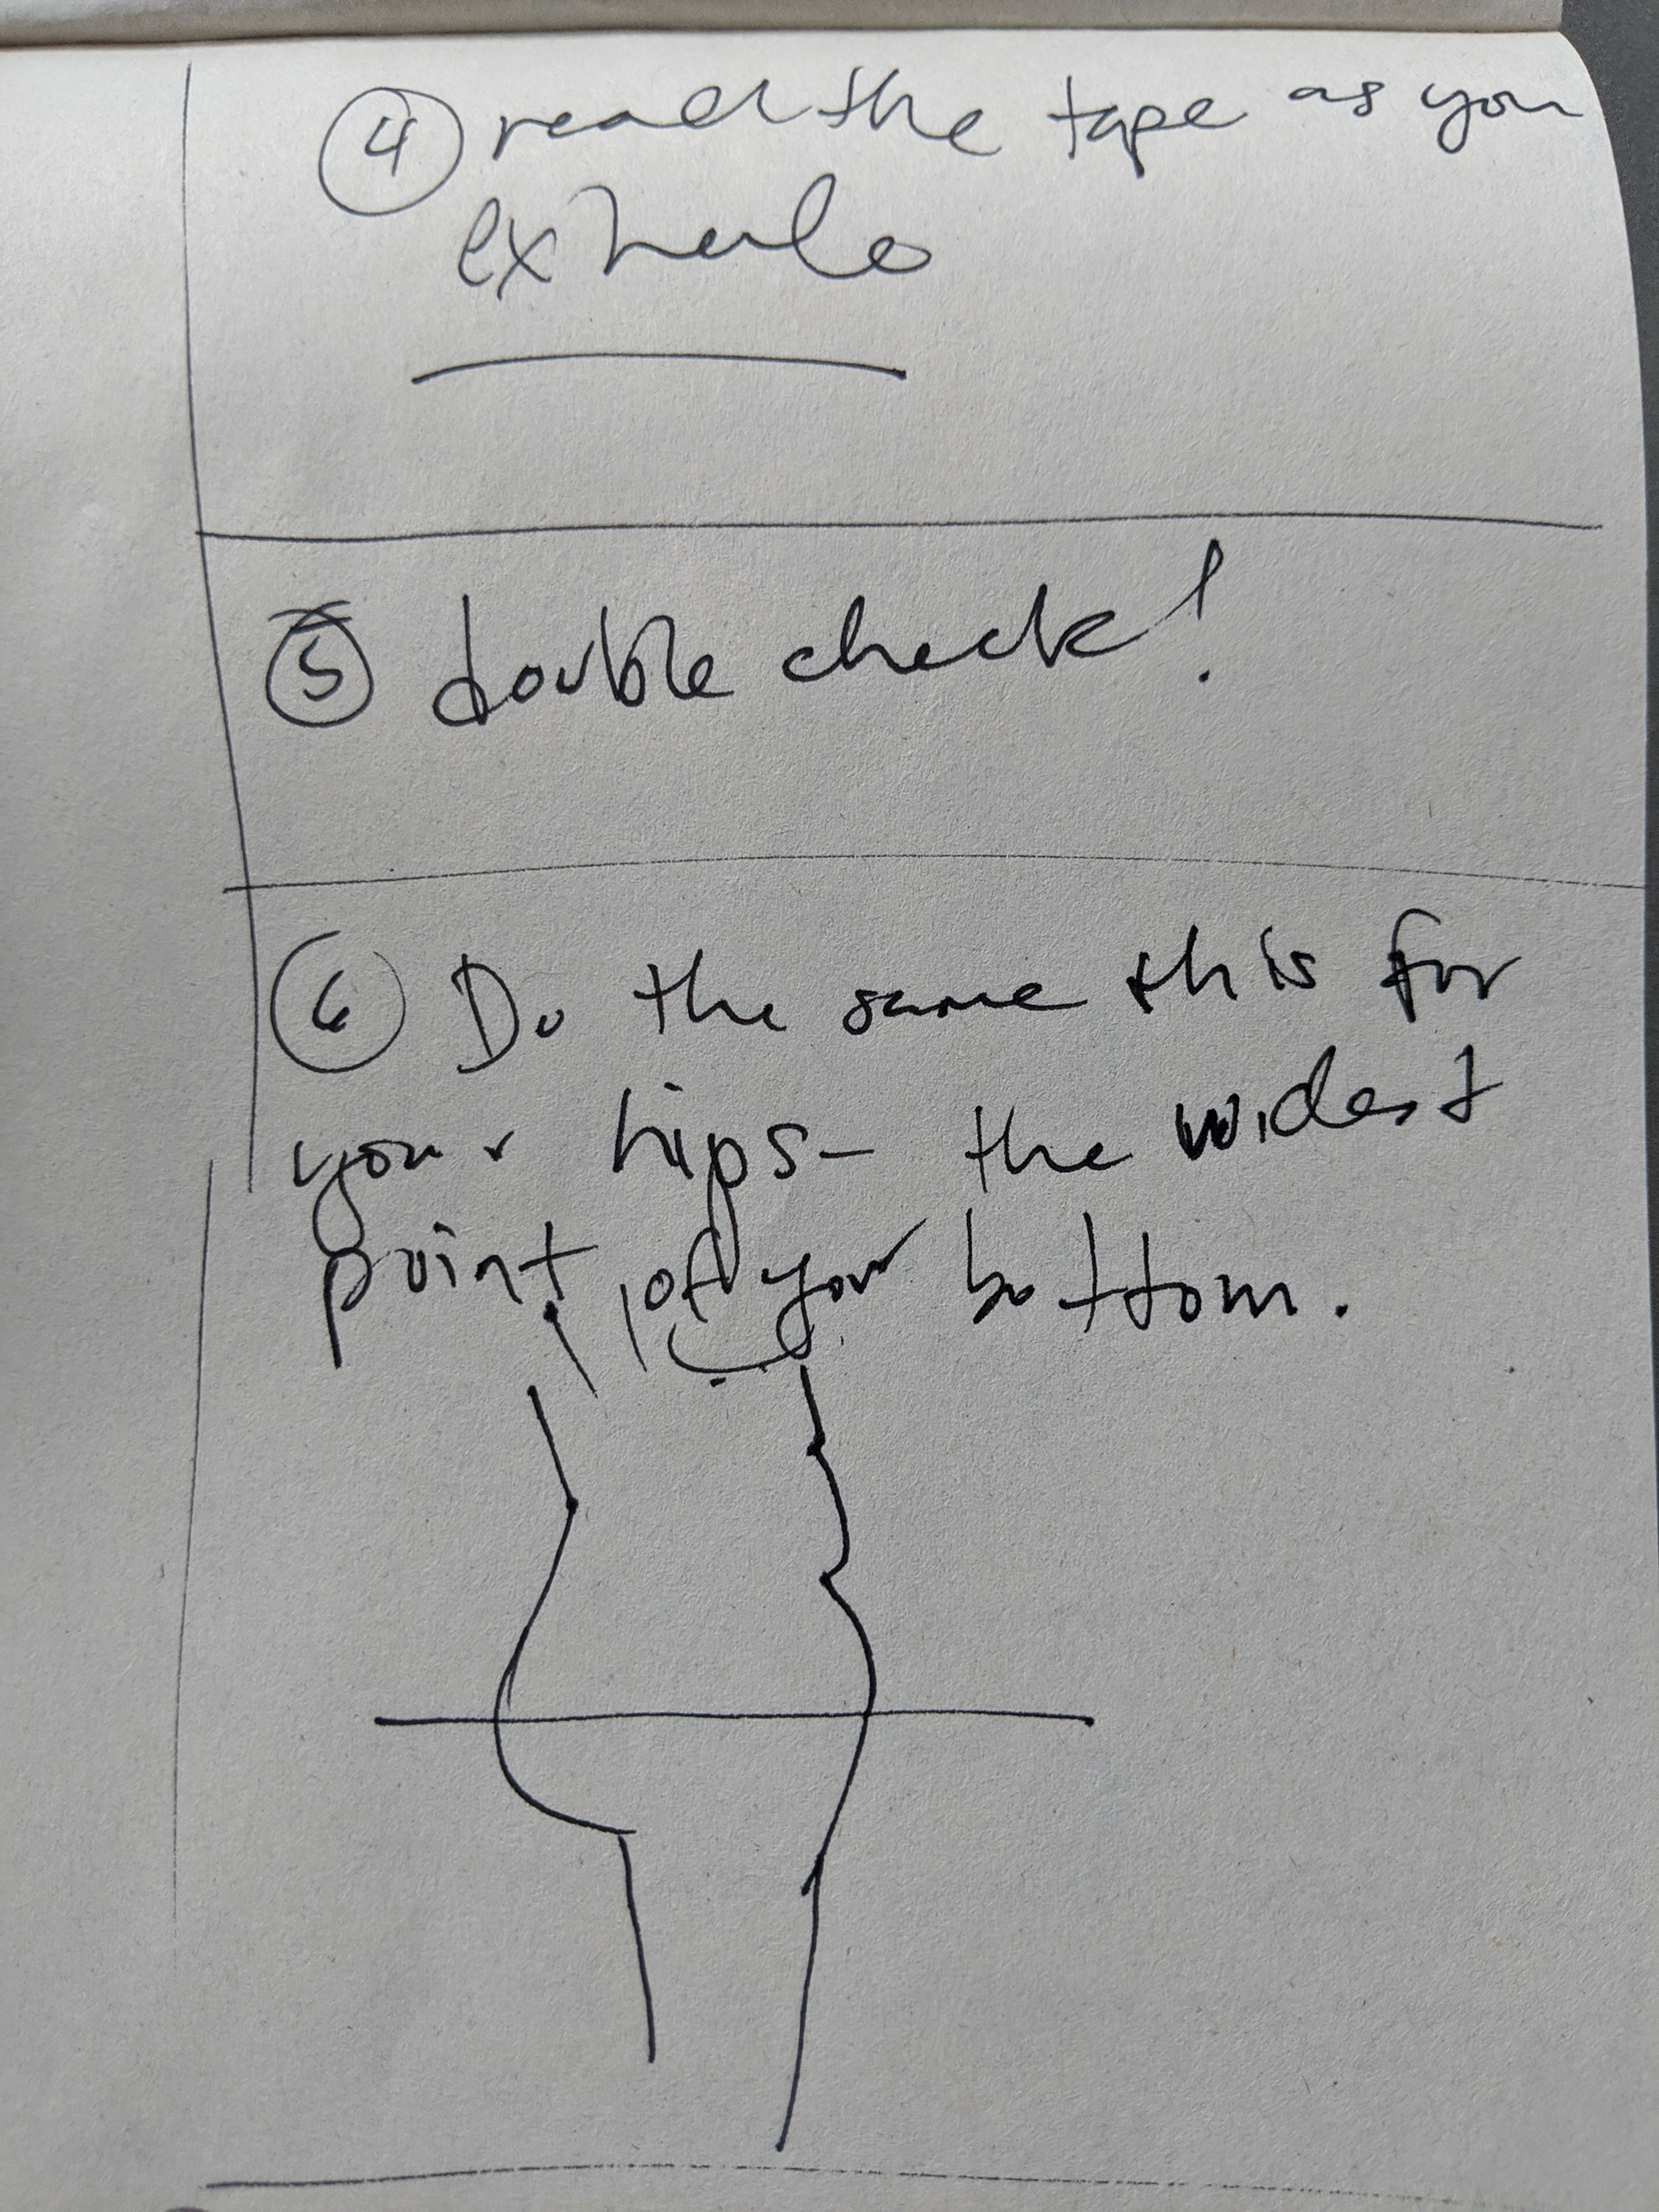 ④ read the tape as you
exhale
⑤ double check!
⑥ Do the same this for
your hips- the widest
point of your bottom.